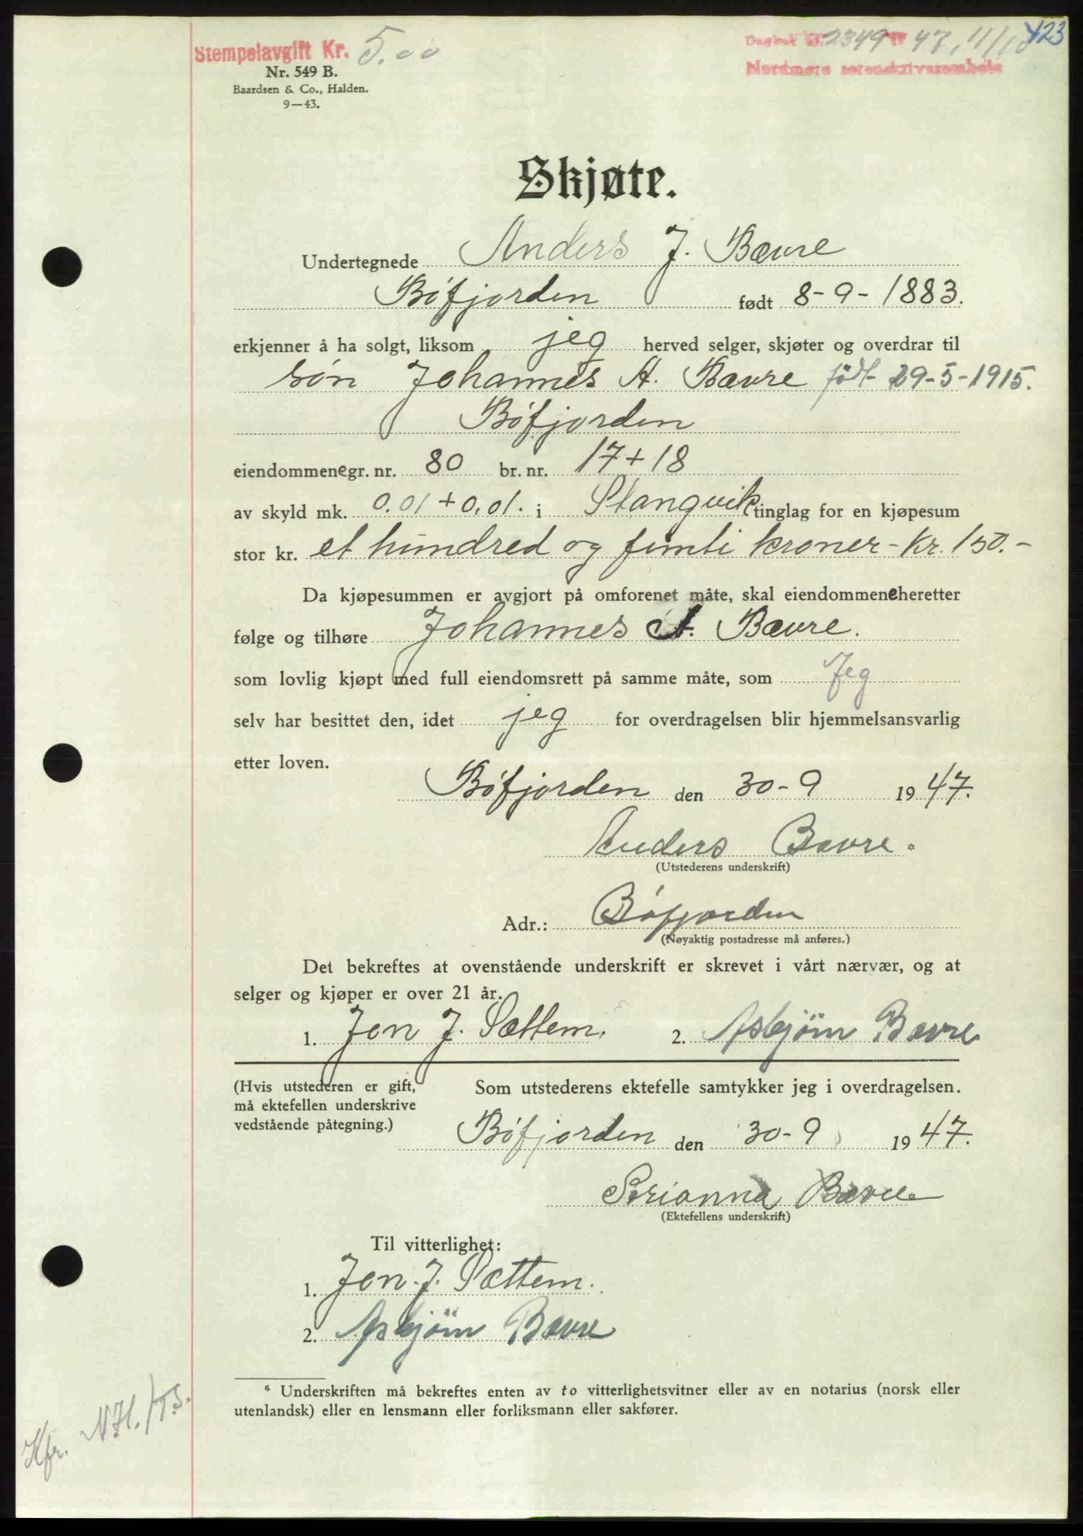 Stempelavgift Kr. 5.00
Dagbok nr. 2349 47, 11/10 423
Nordmøre sorenskriverembete
Nr. 549 B.
Baardsen & Co., Halden.
9—43.
Skjøte.
Undertegnede Anders J. Bævre
Bøfjorden født 8-9-1883.
erkjenner å ha solgt, liksom jeg herved selger, skjøter og overdrar til
søn Johannes A. Bævre født 29-5-1915.
Bøfjorden
eiendommene gr. nr. 80 br. nr. 17+18
av skyld mk. 0.01+0,01. i Stangvik tinglag for en kjøpesum
stor kr. et hundred og femti kroner - Kr. 150.-
Da kjøpesummen er avgjort på omforenet måte, skal eiendommene heretter
følge og tilhøre Johannes A. Bævre.
som lovlig kjøpt med full eiendomsrett på samme måte, som Jeg
selv har besittet den, idet jeg for overdragelsen blir hjemmelsansvarlig
etter loven.
Bøfjorden den 30-9 1947.
Anders Bævre *
(Utstederens underskrift)
Adr.: Bøfjorden
(Nøyaktig postadresse må anføres.)
Det bekreftes at ovenstående underskrift er skrevet i vårt nærvær, og at
selger og kjøper er over 21 år.
1. Jon J. Sættem. 2. Asbjörn Bævre
(Hvis utstederen er gift, Som utstederens ektefelle samtykker jeg i overdragelsen.
må ektefellen underskrive
vedstående påtegning.)
Bøfjorden den 30-9 1947.
Serianna Bævre *
(Ektefellens underskrift)
Til vitterlighet:
1. Jon J. Sættem.
2. Asbjörn Bævre
* Underskriften må bekreftes enten av to vitterlighetsvitner eller av en notarius (norsk eller
utenlandsk) eller en lensmann eller forliksmann eller sakfører.
Kfr. NH./TS.